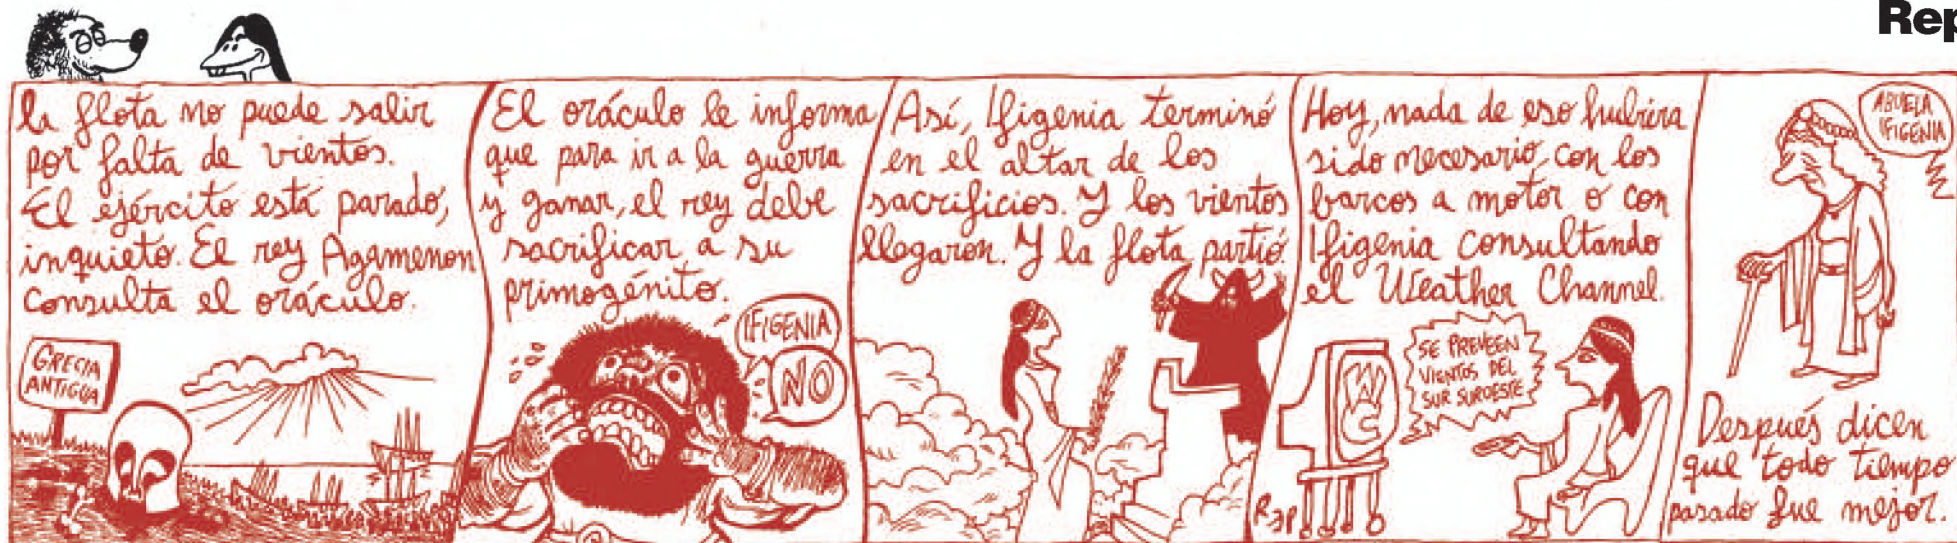 Rep
la flota no puede salir
por falta de vientos.
El ejército está parado,
inquieto. El rey Agamenon
consulta el oráculo.
GRECIA
ANTIGUA
El oráculo le informa
que para ir a la guerra
y ganar, el rey debe
sacrificar a su
primogénito.
IFIGENIA
NO
Así, Ifigenia terminó
en el altar de los
sacrificios. Y los vientos
llegaron. Y la flota partió.
Hoy, nada de eso hubiera
sido necesario, con los
barcos a motor o con
Ifigenia consultando
el Weather Channel.
WC
SE PREVEEN
VIENTOS DEL
SUR SUROESTE
Rep
ABUELA
IFIGENIA
Después dicen
que todo tiempo
pasado fue mejor.